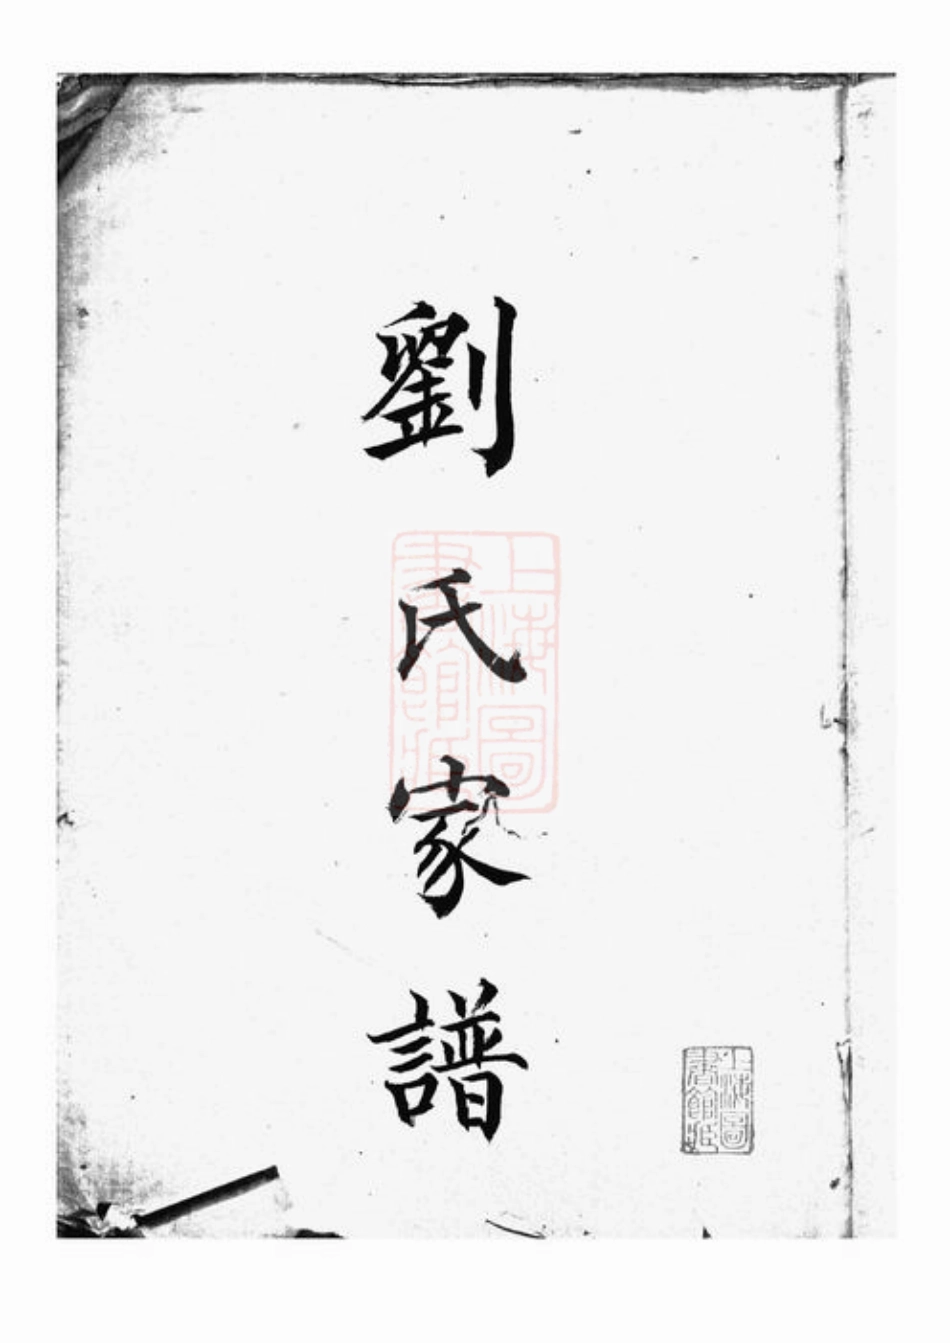 劉氏家譜
上海圖
書館藏
上海圖
書館藏